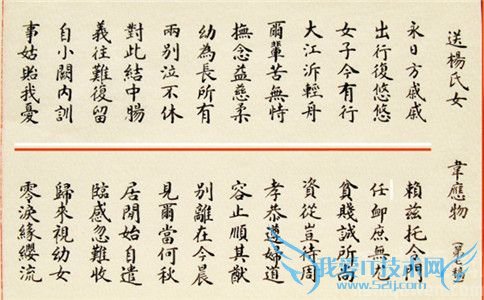 送楊氏女
永日方戚戚
出行復悠悠
女子今有行
大江泝輕舟
爾輩苦無恃
撫念益慈柔
幼為長所育
兩別泣不休
對此結中腸
義往難復留
自小闕內訓
事姑貽我憂
韋應物
賴茲托令門
任卹庶無尤
貧賤誠所尚
資從豈待周
孝恭遵婦道
容止順其猷
別離在今晨
見爾當何秋
居閒始自遣
臨感忽難收
歸來視幼女
零淚緣纓流
我爱IT技术网